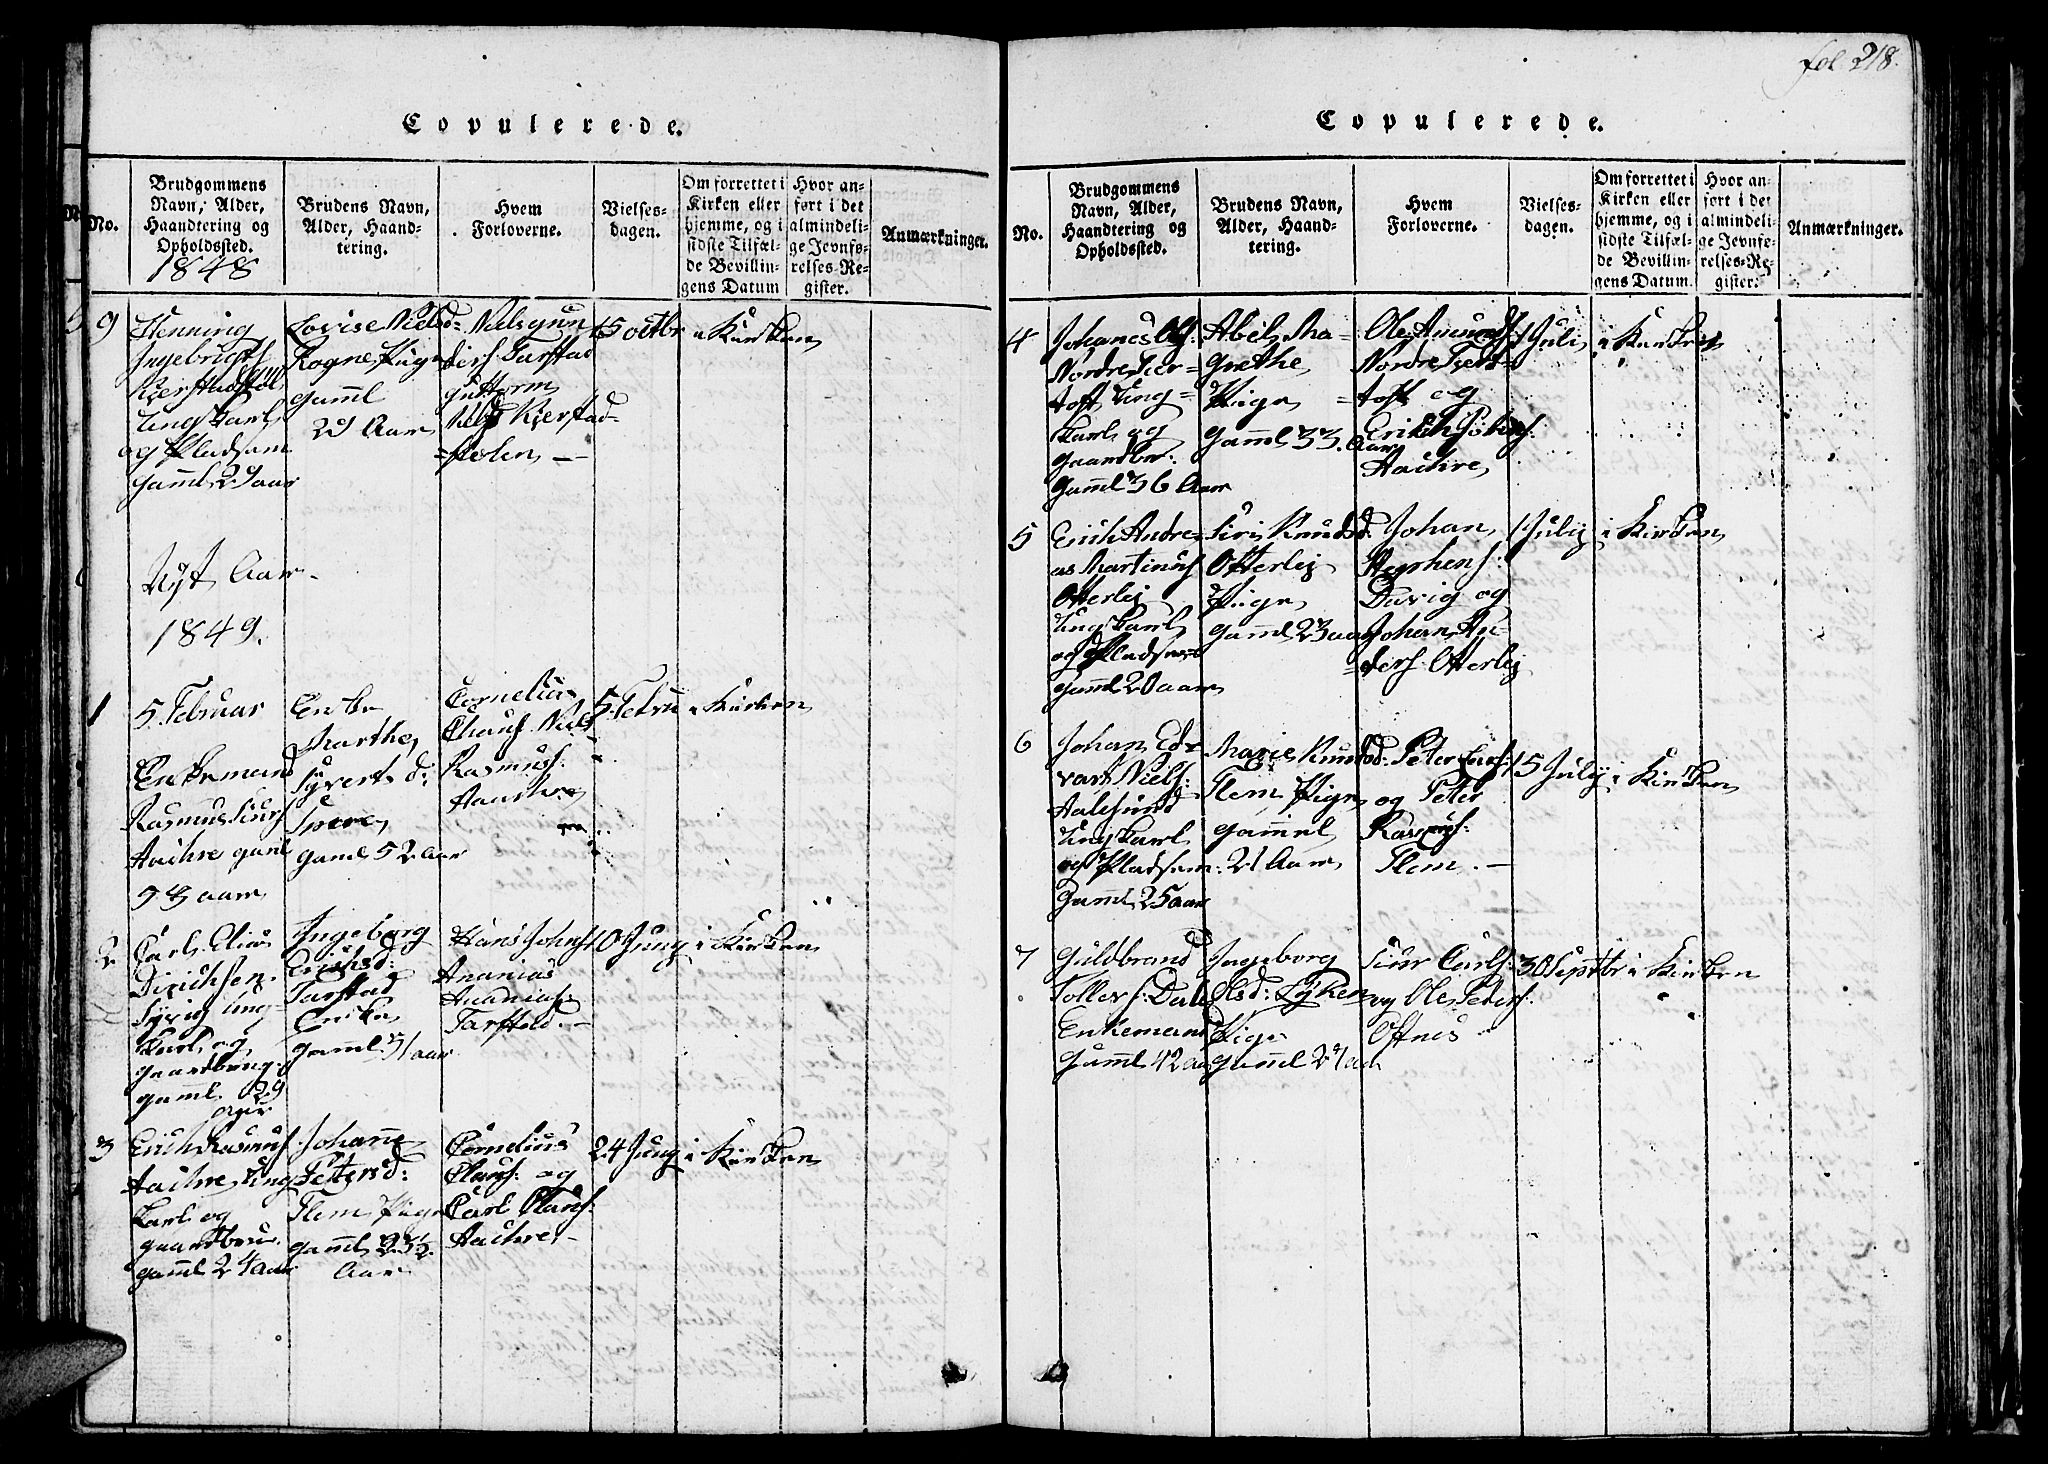 fol. 218.
Copulerede.
No.
Brudgommens
Navn, Alder,
Haandtering og
Opholdssted.
1848
Brudens Navn,
Alder, Haand-
tering.
Hvem
Forloverne.
Vielses-
dagen.
Om forrettet i
Kirken eller
hjemme, og i
sidste Tilfæl-
de Bevillin-
gens Datum
Hvor an-
ført i det
almindeli-
ge Jevnfø-
relses-Re-
gister.
Anmærkninger.
9
Henning
Ungkarl
og Pladsem
gaml 24 aar
Lovise Nielsd:
Rogne Pige
gaml
Aar
Tarstad
Guttorm
Kierstad-
15 octbr
i Kirken
Nyt Aar
1849.
1
5. Februar
Enkemand
Rasmus Siurs
Aachre gaml
aar
Enke
Marthe
Syverts d:
gaml 52 aar
Cornelius
Claus. Niels
Rasmus:
5. Febru
i Kirken
2
Carl Elias
Dirichsen
Ung-
karl og
gaardbrug:
gaml 29
aar
Ingeborg
Erichsd:
Tarstad
Enke
gaml 31 aar
Hans Johns
Ananias
Ananias:
Tarstad.
10 Juny
i Kirken
3
Erich Rasmus
Aachre Ung
karl og
gaardbru.
gaml 24 aar
Johanne
Petersd:
Flem Pige
gaml 23½
Aar
Cornelius
Claus: og
Carl Claus:
Aachre
24 Juny
i Kirken
Copulerede.
No.
Brudgommens
Navn, Alder,
Haandtering og
Opholdssted.
Brudens Navn,
Alder, Haand-
tering.
Hvem
Forloverne.
Vielses-
dagen.
Om forrettet i
Kirken eller
hjemme, og i
sidste Tilfæl-
de Bevillin-
gens Datum.
Hvor an-
ført i det
almindeli-
ge Jevnfø-
relses-Re-
gister.
Anmærkninger.
4
Johanes Ols:
Nordre Tær-
toft Ung-
karl og
gaardbr:
gaml 36 Aar
Abel Ma-
grethe
Pige
gaml 33. Aar
Ole Amunds
Nordre Tært-
toft og
Erich
Aachre
1 Juli
i
5
Erich Andre-
as Martinus
Otterlej
Ungkarl
og Pladsem
gaml 20 aar
Siri Knudsd:
Otterlej
Pige
gaml 23 aar
Johan
Stephens:
Davig og
Johan An-
ders: Otterlej
1 July
i Kirken
6
Johan Ed-
vart Niels:
Aalesund
Ungkarl
og Pladsem:
gaml 25 aar
Marie Knudsd:
Flem Pige
gammel
21 Aar
Peter
og Peter
Rasmus:
Flem.
15 July
i Kirken
7
Guldbrand
Tollers: Dale
Enkemand
gaml 42 aar
Ingeborg
Olsd: Lyken
Pige
gaml 24 aar
Siur Carls:
og Ole Peters:
Oftnes
30 Septbr
i Kirken